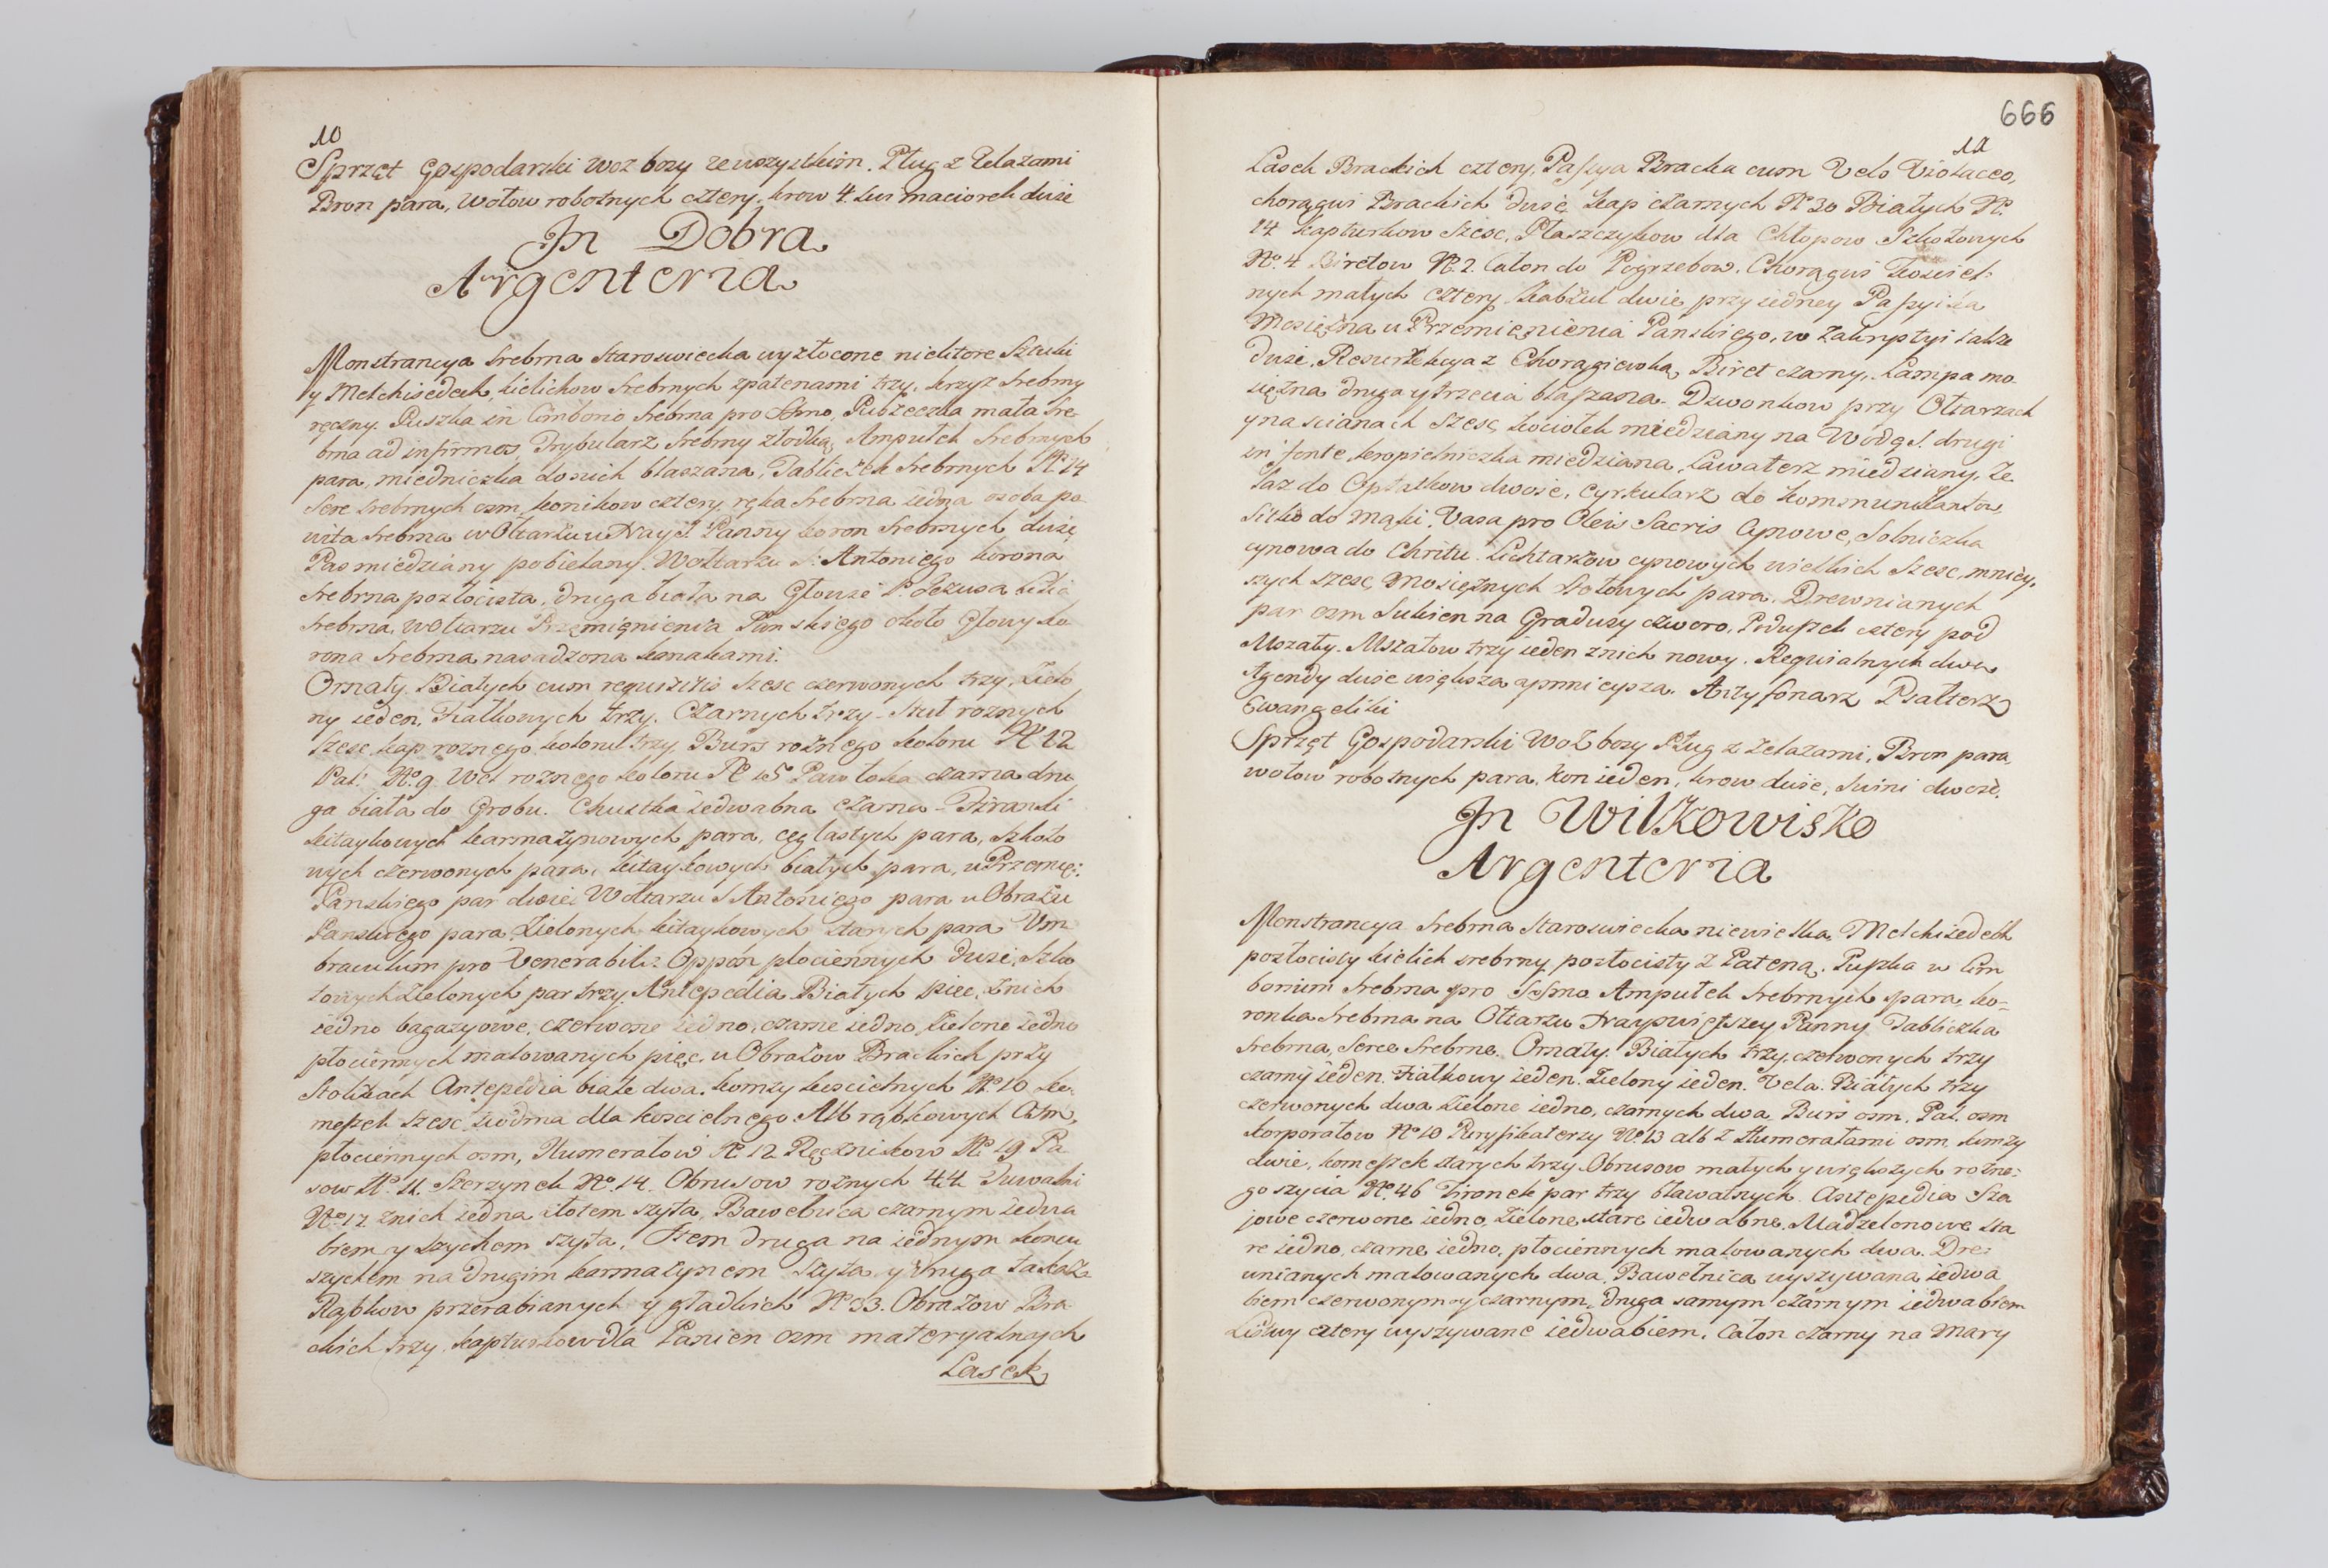 10
Sprzęt Gospodarski woz bosy ze wszystkim. Pług z Zelazami
Bron para, wołow robotnych cztery, krow 4. Swi maciorek dwie
In Dobra
Argenteria
Monstrancya srebrna staroswiecka wyzłocone niektore Sztuki
y Melchisedech, kielichow srebrnych z patenami trzy, krzyz srebrny
ręczny. Puszka in Cimborio srebrna pro SSmo, Puszeczka mała sre-
brna ad infirmos, Trybularz srebrny z łodką, Ampułek srebrnych
para, miedniczka do nich blaszana, Tabliczek srebrnych No 14
Serc srebrnych osm, konikow cztery, ręka srebrna iedna osoba po
wita srebrna w Ołtarzu u Nayś: Panny koron srebrnych dwie
Pas miedziany pobielany. W ołtarzu S: Antoniego korona
srebrna pozłocista, druga biała na Głowie P. Jezusa
srebrna, w Ołtarzu Przemięnienia Panskiego około Głowy ko
rona srebrna nasadzona kanakami.
Ornaty Białych cum requisitis szesc czerwonych trzy, Zielo
ny ieden, Fiałkowych trzy. Czarnych trzy. Stuł roznych
szesc, kap roznego koloru trzy, Burs roznego koloru No 12
Pal: No. 9. Wel roznego koloru No 15 Pawłoka czarna dru
ga biała do Grobu. Chustka iedwabna czarna. Firanki
kitaykowych karmazynowych para, ceglastych para, szkoło
wych czerwonych para, kitaykowych białych para, u Przemię:
Panskiego par dwie. W ołtarzu S Antoniego para u Obrazu
Panskiego para. Zielonych kitaykowych starych para Um
braculum pro Venerabili: Oppon płociennych dwie, Szko
łowych Zielonych par trzy. Antepedia Białych pięc, z nich
iedno bagazyowe, czerwone iedno, czarne iedno, Zielone iedno
płociennych malowanych pięc, u Obrazow Brackich przy
Stolikach Antepedia białe dwa. komzy koscielnych No 10 ko-
mezek szesc siodma dla koscielnego Alb rąbkowych osm,
płociennych osm, Humerałow No 12 Ręcznikow No. 19 Pa
sow No. 11. Szerzynek No. 14. Obrusow roznych 44. Tuwalni
No. 17 z nich iedna złotem szyta, Bawełnica czarnym iedwa
biem y szychem szyta, Item druga na iednym koncu
szychem na drugim karmazynem szyta y druga takaż
Rąbkow przerabianych y gładkich No 33. Obrazow Bra
ckich trzy kapturkow dla Panien osm materyalnych
Lasek
666
11
Lasek Brackich cztery, Passya Bracka cum Velo Violaceo,
chorągwi Brackich dwie kap czarnych No 30 Białych No.
14 kapturkow szesc, Płaszczykow dla Chłopow Szkołowych
No. 4 Biretow No. 2. Całon do Pogrzebow. Chorągwi Kosciel:
nych małych cztery kabzul dwie przy iedney Passyika
Mosiężna u Przemięnienia Panskiego, w Zakrystyi także
dwie, Resurrekcya z Chorągiewką, Biret czarny, Lampa mo
siężna druga y trzecia blaszana. Dzwonkow przy Ołtarzach
y na scianach szesc, kociołek miedziany na Wodę S. drugi
in fonte, kropielniczka miedziana, Lawaterz miedziany, Że
laz do Opłatkow dwoie, cyrkularz do kommunikantow,
sitko do mąki, Vasa pro Oleis Sacris Cynowe, Solniczka
cynowa do Chrztu. Lichtarzow cynowych wielkich szesc, mniey-
szych szesc, Mosiężnych stołowych para. Drewnianych
par osm Sukien na Gradusy czworo. Poduszek cztery pod
Mszały. Mszałow trzy ieden z nich nowy. Requialnych dwa
Agendy dwie większa y mnieysza. Antyfonarz Psalterz
Ewangeliki
Sprzęt Gospodarski Woz bosy Pług z zelazami, Bron para,
wołow robotnych para, kon ieden, krow dwie, swini dwoie.
In Wilkowisko
Argenteria
Monstrancya srebrna staroswiecka niewielka, Melchisedech
pozłocisty kielich srebrny pozłocisty z Pateną. Puszka w Cim
borium srebrna pro SSmo Ampułek srebrnych para, ko-
ronka srebrna na Ołtarzu Nayswiętszey Panny Tabliczka
srebrna, Serce srebrne. Ornaty. Białych trzy, czerwonych trzy
czarny ieden. Fiałkowy ieden. Zielony ieden. Vela. Białych trzy
czerwonych dwa Zielone iedno, czarnych dwa, Burs osm, Pal. osm
korporałow No 10 Puryfikaterzy No. 13 alb z Humerałami osm komzy
dwie, komeszek starych trzy. Obrusow małych y większych rozne:
go szycia No. 46 Firanek par trzy bławatnych. Antepedia Sza
jowe czerwone iedno, Zielone stare iedwabne. Madzelonowe sta
re iedno, czarne iedno, płociennych malowanych dwa. Dre:
wnianych malowanych dwa. Bawełnica wyszywana iedwa
biem czerwonym y czarnym, druga samym czarnym iedwabiem
Listwy cztery wyszywane iedwabiem. Całon czarny na Mary